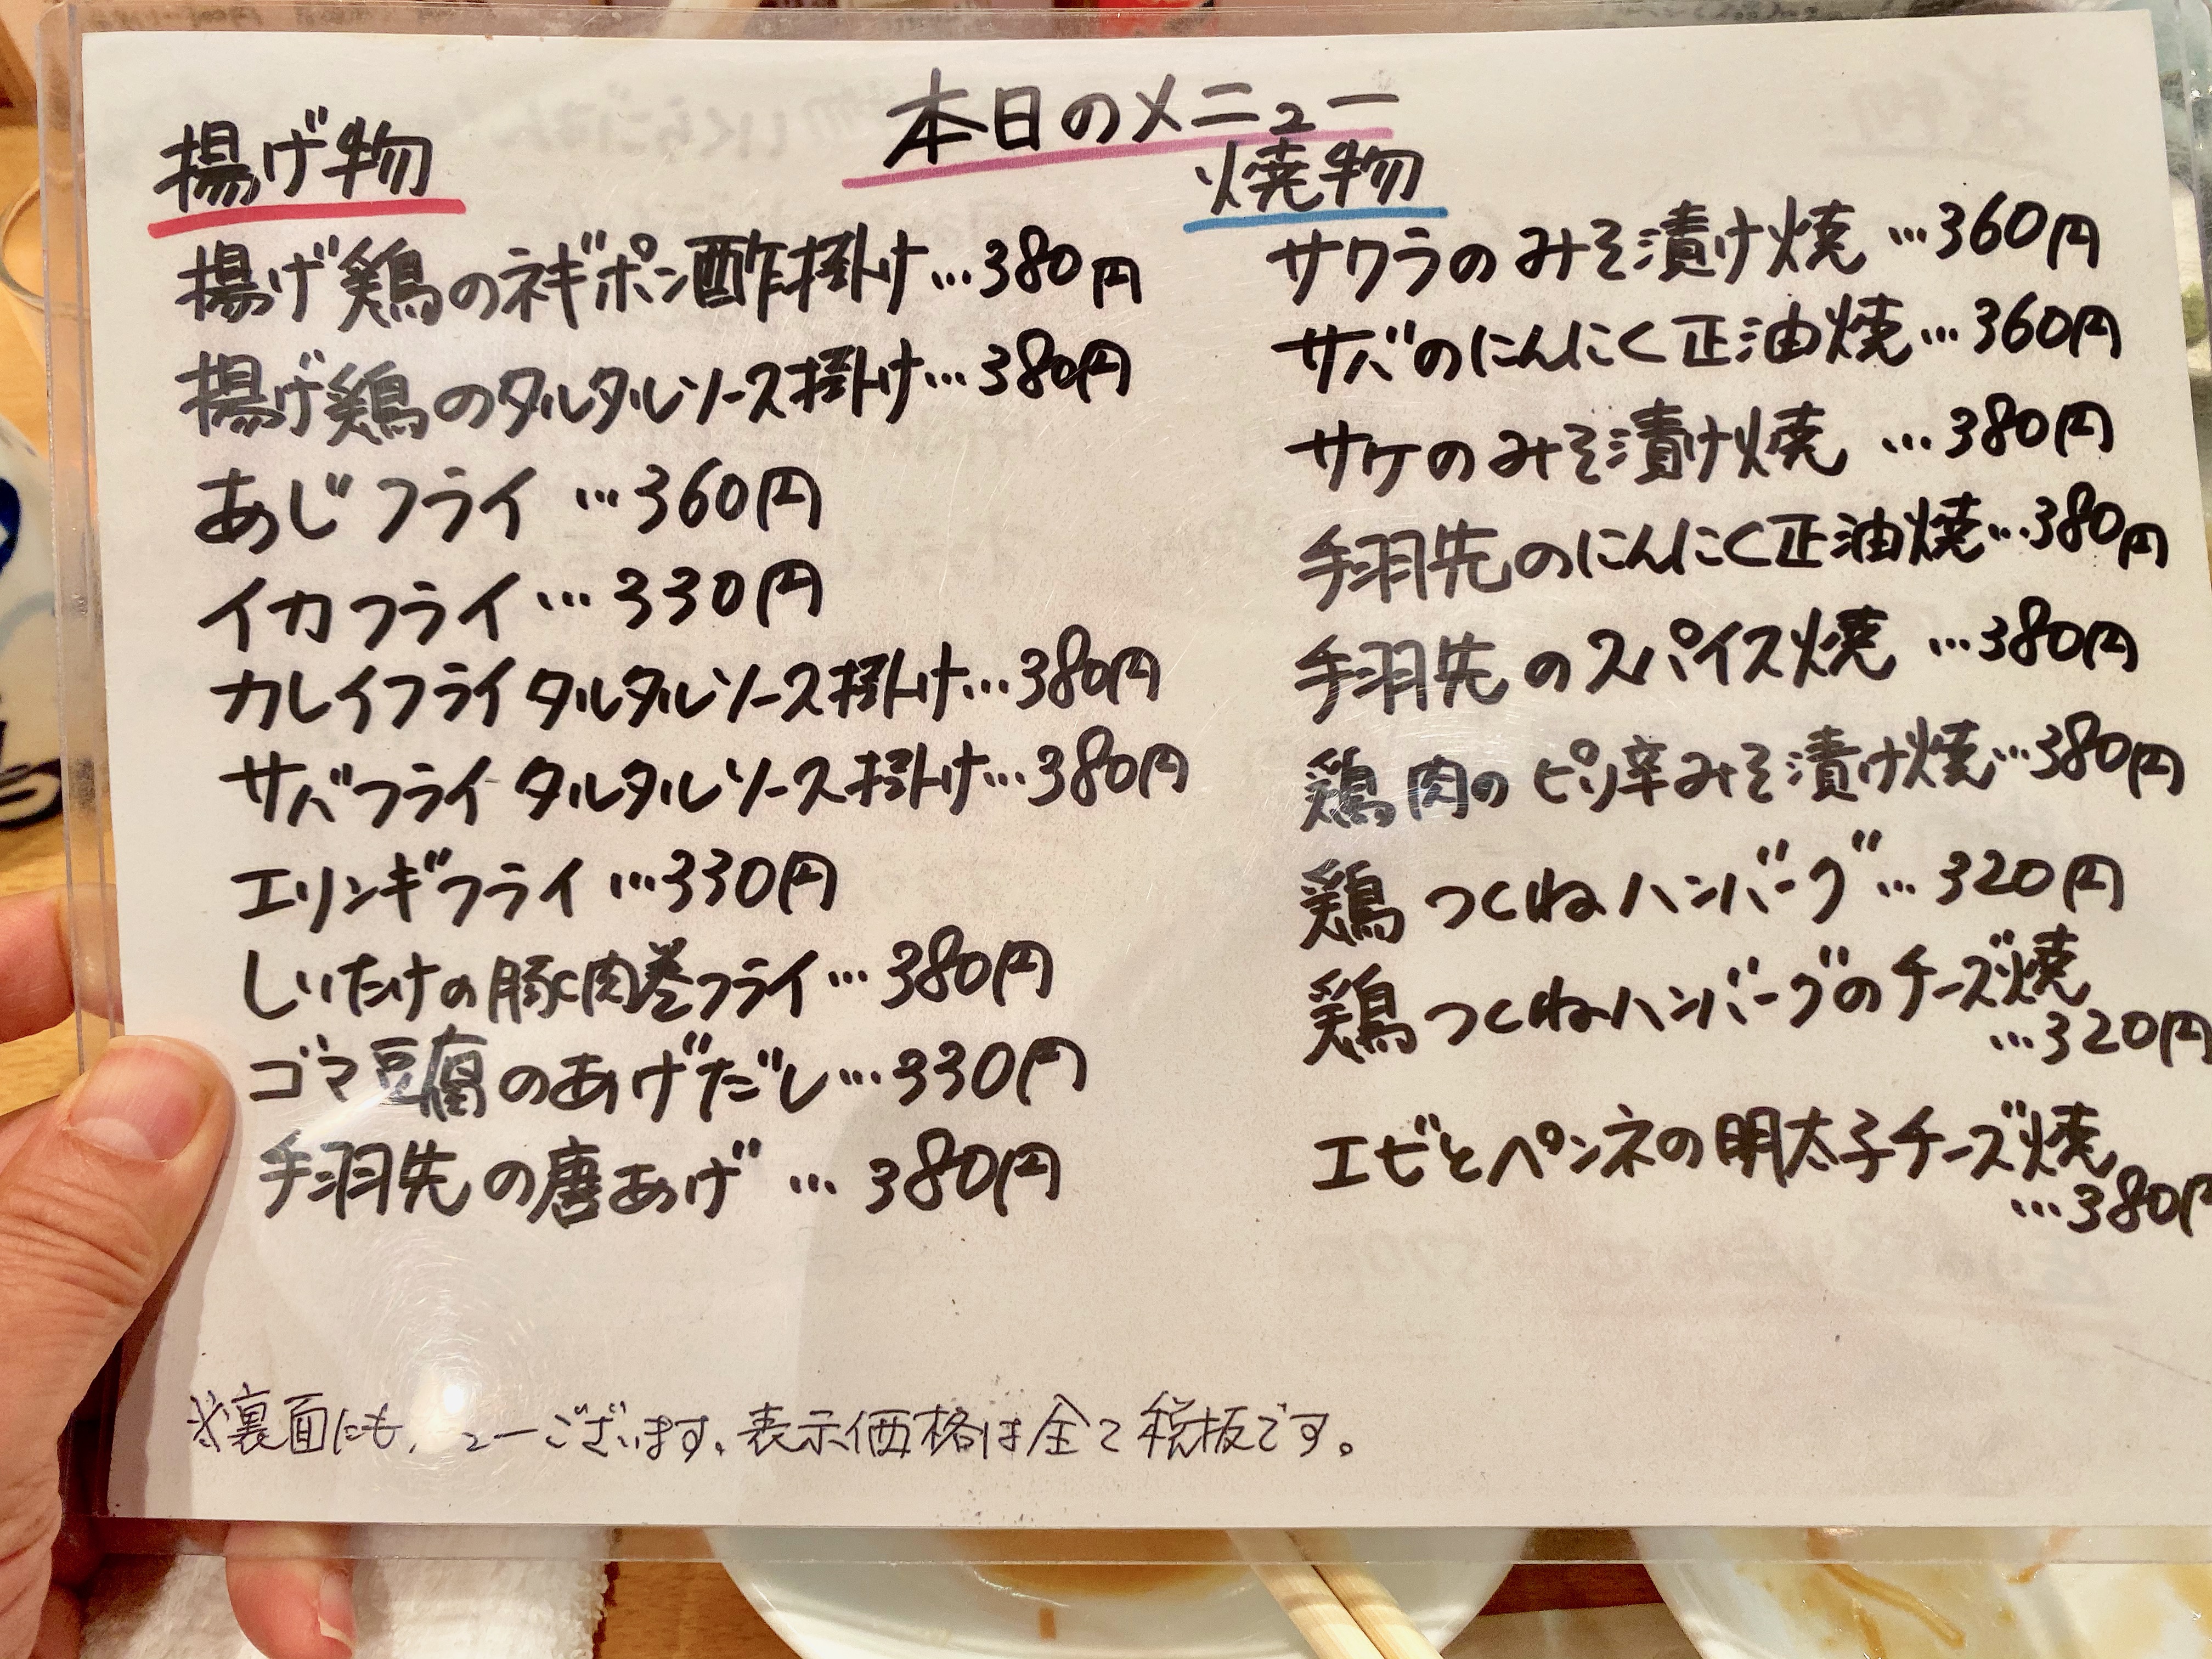 本日のメニュー
揚げ物
揚げ鶏のネギポン酢掛け…380円
揚げ鶏のタルタルソース掛け…380円
あじフライ…360円
イカフライ…330円
カレイフライタルタルソース掛け…380円
サバフライタルタルソース掛け…380円
エリンギフライ…330円
しいたけの豚肉巻フライ…380円
ゴマ豆腐のあげだし…330円
手羽先の唐あげ…380円
焼物
サワラのみそ漬け焼…360円
サバのにんにく正油焼…360円
サケのみそ漬け焼…380円
手羽先のにんにく正油焼…380円
手羽先のスパイス焼…380円
鶏肉のピリ辛みそ漬け焼…380円
鶏つくねハンバーグ…320円
鶏つくねハンバーグのチーズ焼
…320円
エビとペンネの明太子チーズ焼
…380円
※裏面にもメニューございます、表示価格は全て税抜です。